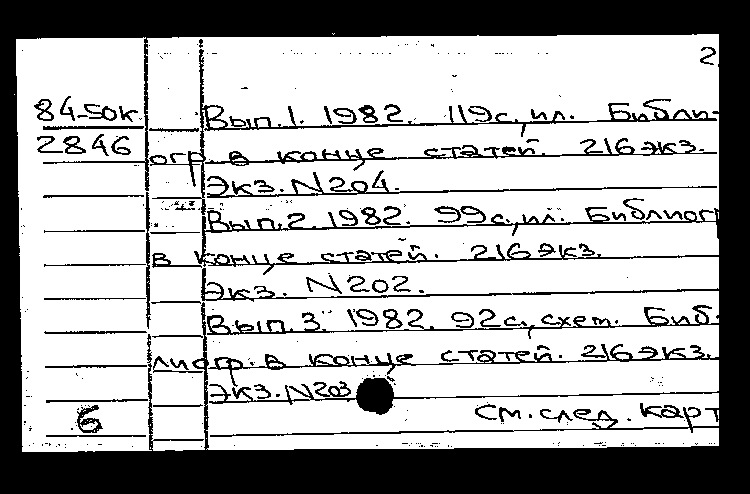 2
84-50к Вып.1. 1982. 119с.,ил. Библи-
2846 огр. в конце статей. 216 экз.
Экз. N204.
Вып.2. 1982. 99с.,ил. Библиогр
в конце статей. 216 экз.
Экз. N202.
Вып.3. 1982. 92с.,схем. Биб-
лиогр. в конце статей. 216 экз.
Экз. N203
6 См. след. карт